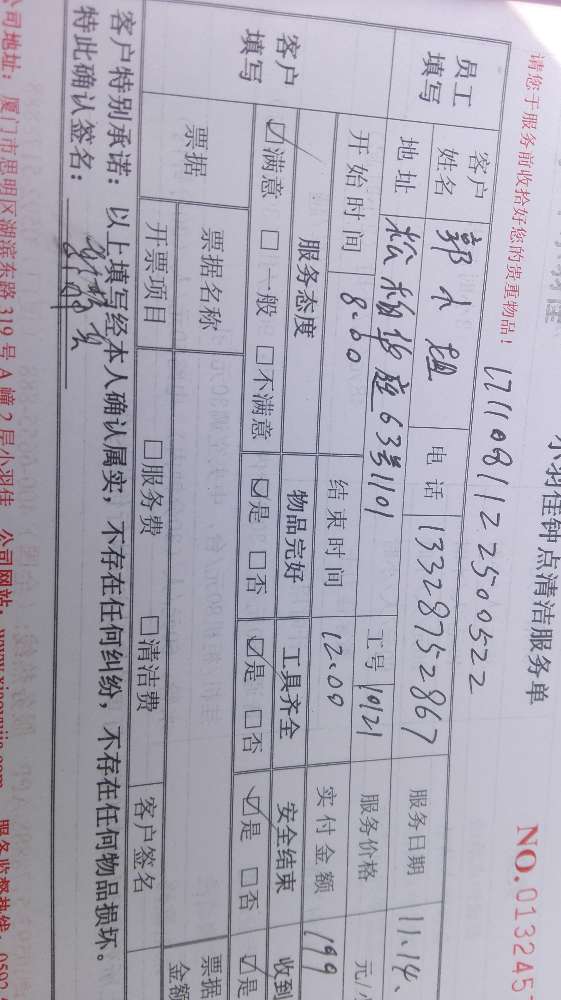 小羽佳钟点清洁服务单
NO.013245
1711081122500522
请您于服务前收拾好您的贵重物品！
员工填写
客户姓名 郭大姐 电话 13328752867 服务日期 11.14.
地址 63号1101 工号 1021 服务价格 元/
开始时间 8.00 结束时间 12.00 实付金额 199
客户填写
服务态度 物品完好 工具齐全 安全结束 收到
☑满意 □一般 □不满意 ☑是 □否 ☑是 □否 ☑是 □否 ☑是
票据 票据名称 票据金额
开票项目 □服务费 □清洁费 客户签名
客户特别承诺：以上填写经本人确认属实，不存在任何纠纷，不存在任何物品损坏。
特此确认签名：
公司地址：厦门市思明区湖滨东路319号A幢2层小羽佳 公司网站：www.xiaoyujia.com 服务监督热线：0592